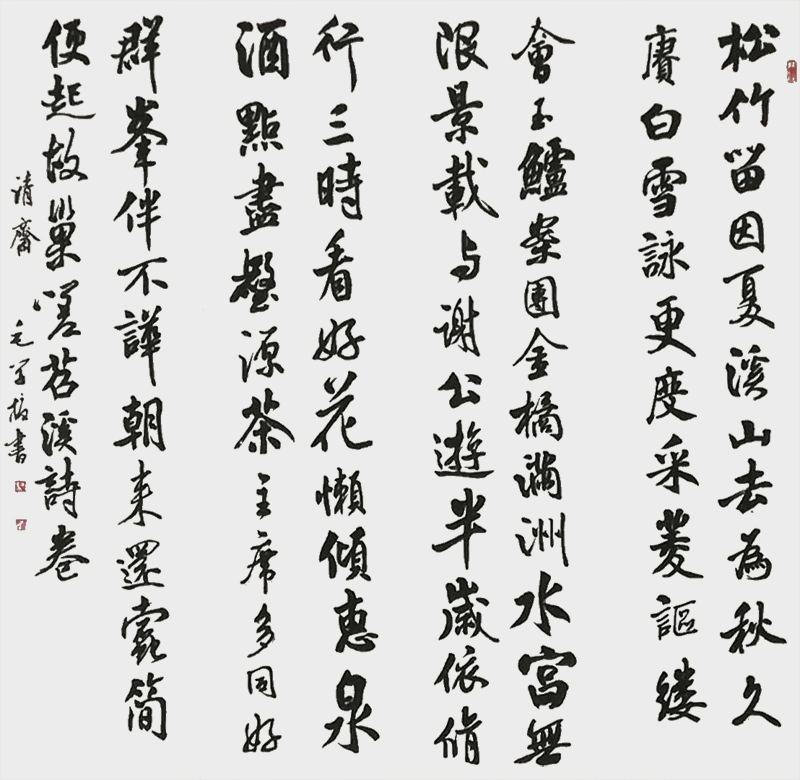 松竹留因夏溪山去為秋久
賡白雪詠更度采菱謳縷
會玉鱸案團金橘滿洲水宮無
限景載与謝公遊半歲依脩
竹三時看好花懶傾惠泉
酒點盡壑源茶主席多同好
群峯伴不譁朝来還蠹簡
便起故巢嗟苕溪詩卷
齋 毛 書